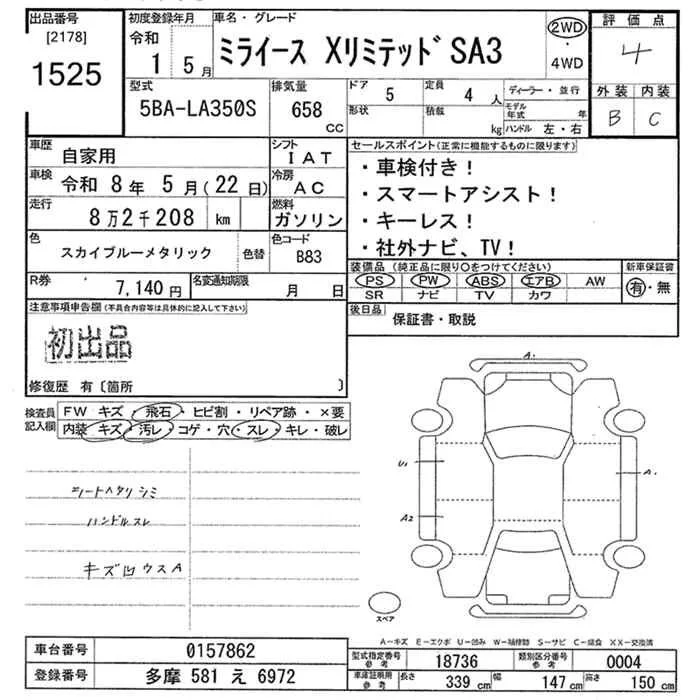 出品番号
[2178]
1525
初度登録年月
令和
1 5月
車名・グレード
ミライース Xリミテッド SA3
2WD
・
4WD
評価点
4
外装 内装
B C
型式
5BA-LA350S
排気量
658
CC
ドア
5
定員
4
人
形状
積載
kg
ディーラー・並行
モデル年式
年
ハンドル 左・右
車歴
自家用
シフト
IAT
車検
令和 8年 5月(22日)
冷房
AC
走行
8万2千208 km
燃料
ガソリン
色
スカイブルーメタリック
色替
色コード
B83
R券
7,140円
名変通知期限
月 日
セールスポイント(正常に機能するものに限ります)
・車検付き!
・スマートアシスト!
・キーレス!
・社外ナビ、TV!
装備品 (純正品に限り○をつけてください)
PS PW ABS エアB AW
SR ナビ TV カワ
新車保証書
有・無
後日品
保証書・取説
注意事項申告欄(不具合内容等は具体的に記入して下さい)
初出品
修復歴 有〔箇所 〕
検査員記入欄
FW キズ・飛石・ヒビ割・リペア跡・×要
内装・キズ・汚レ・コゲ・穴・スレ・キレ・破レ
シートヘタリ シミ
ハンドルスレ
キズ凹ウスA
A.
U1
A.
A2
スペア
A-キズ E-エクボ U-凹み W-補修跡 S-サビ C-腐食 XX-交換済
車台番号
0157862
登録番号
多摩 581 え 6972
型式指定番号
参考
18736
類別区分番号
参考
0004
車庫証明用
参考
長さ
339 cm
幅
147 cm
高さ
150 cm